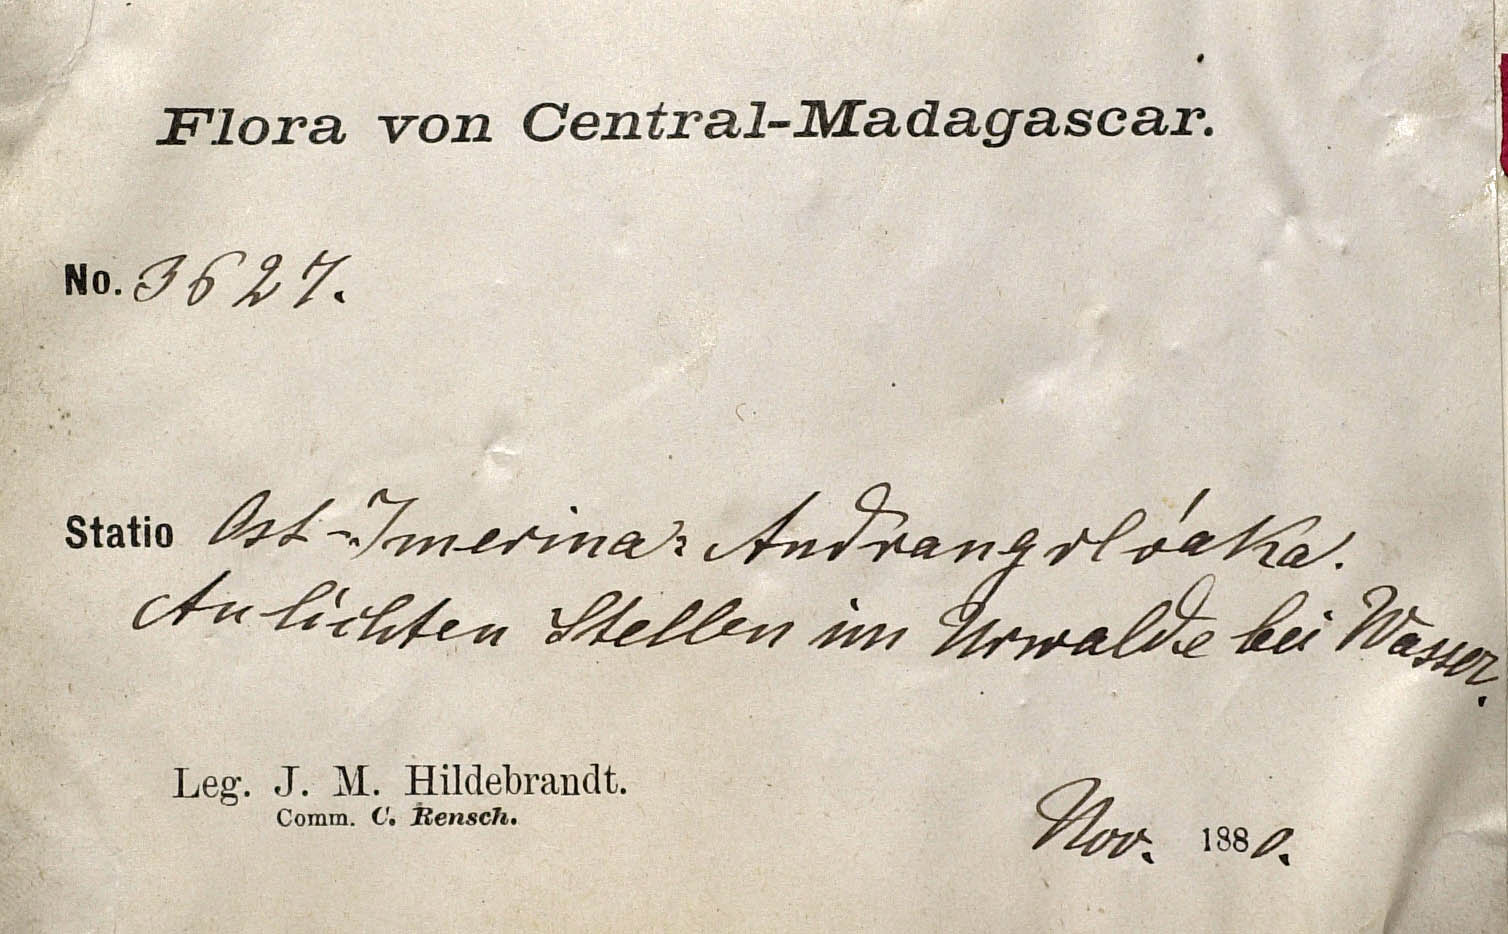 Flora von Central-Madagascar.
No. 3627.
Statio Ost-Imerina: Andrangolóaka.
An lichten Stellen im Urwalde bei Wasser.
Leg. J. M. Hildebrandt.
Comm. C. Rensch.
Nov. 1880.